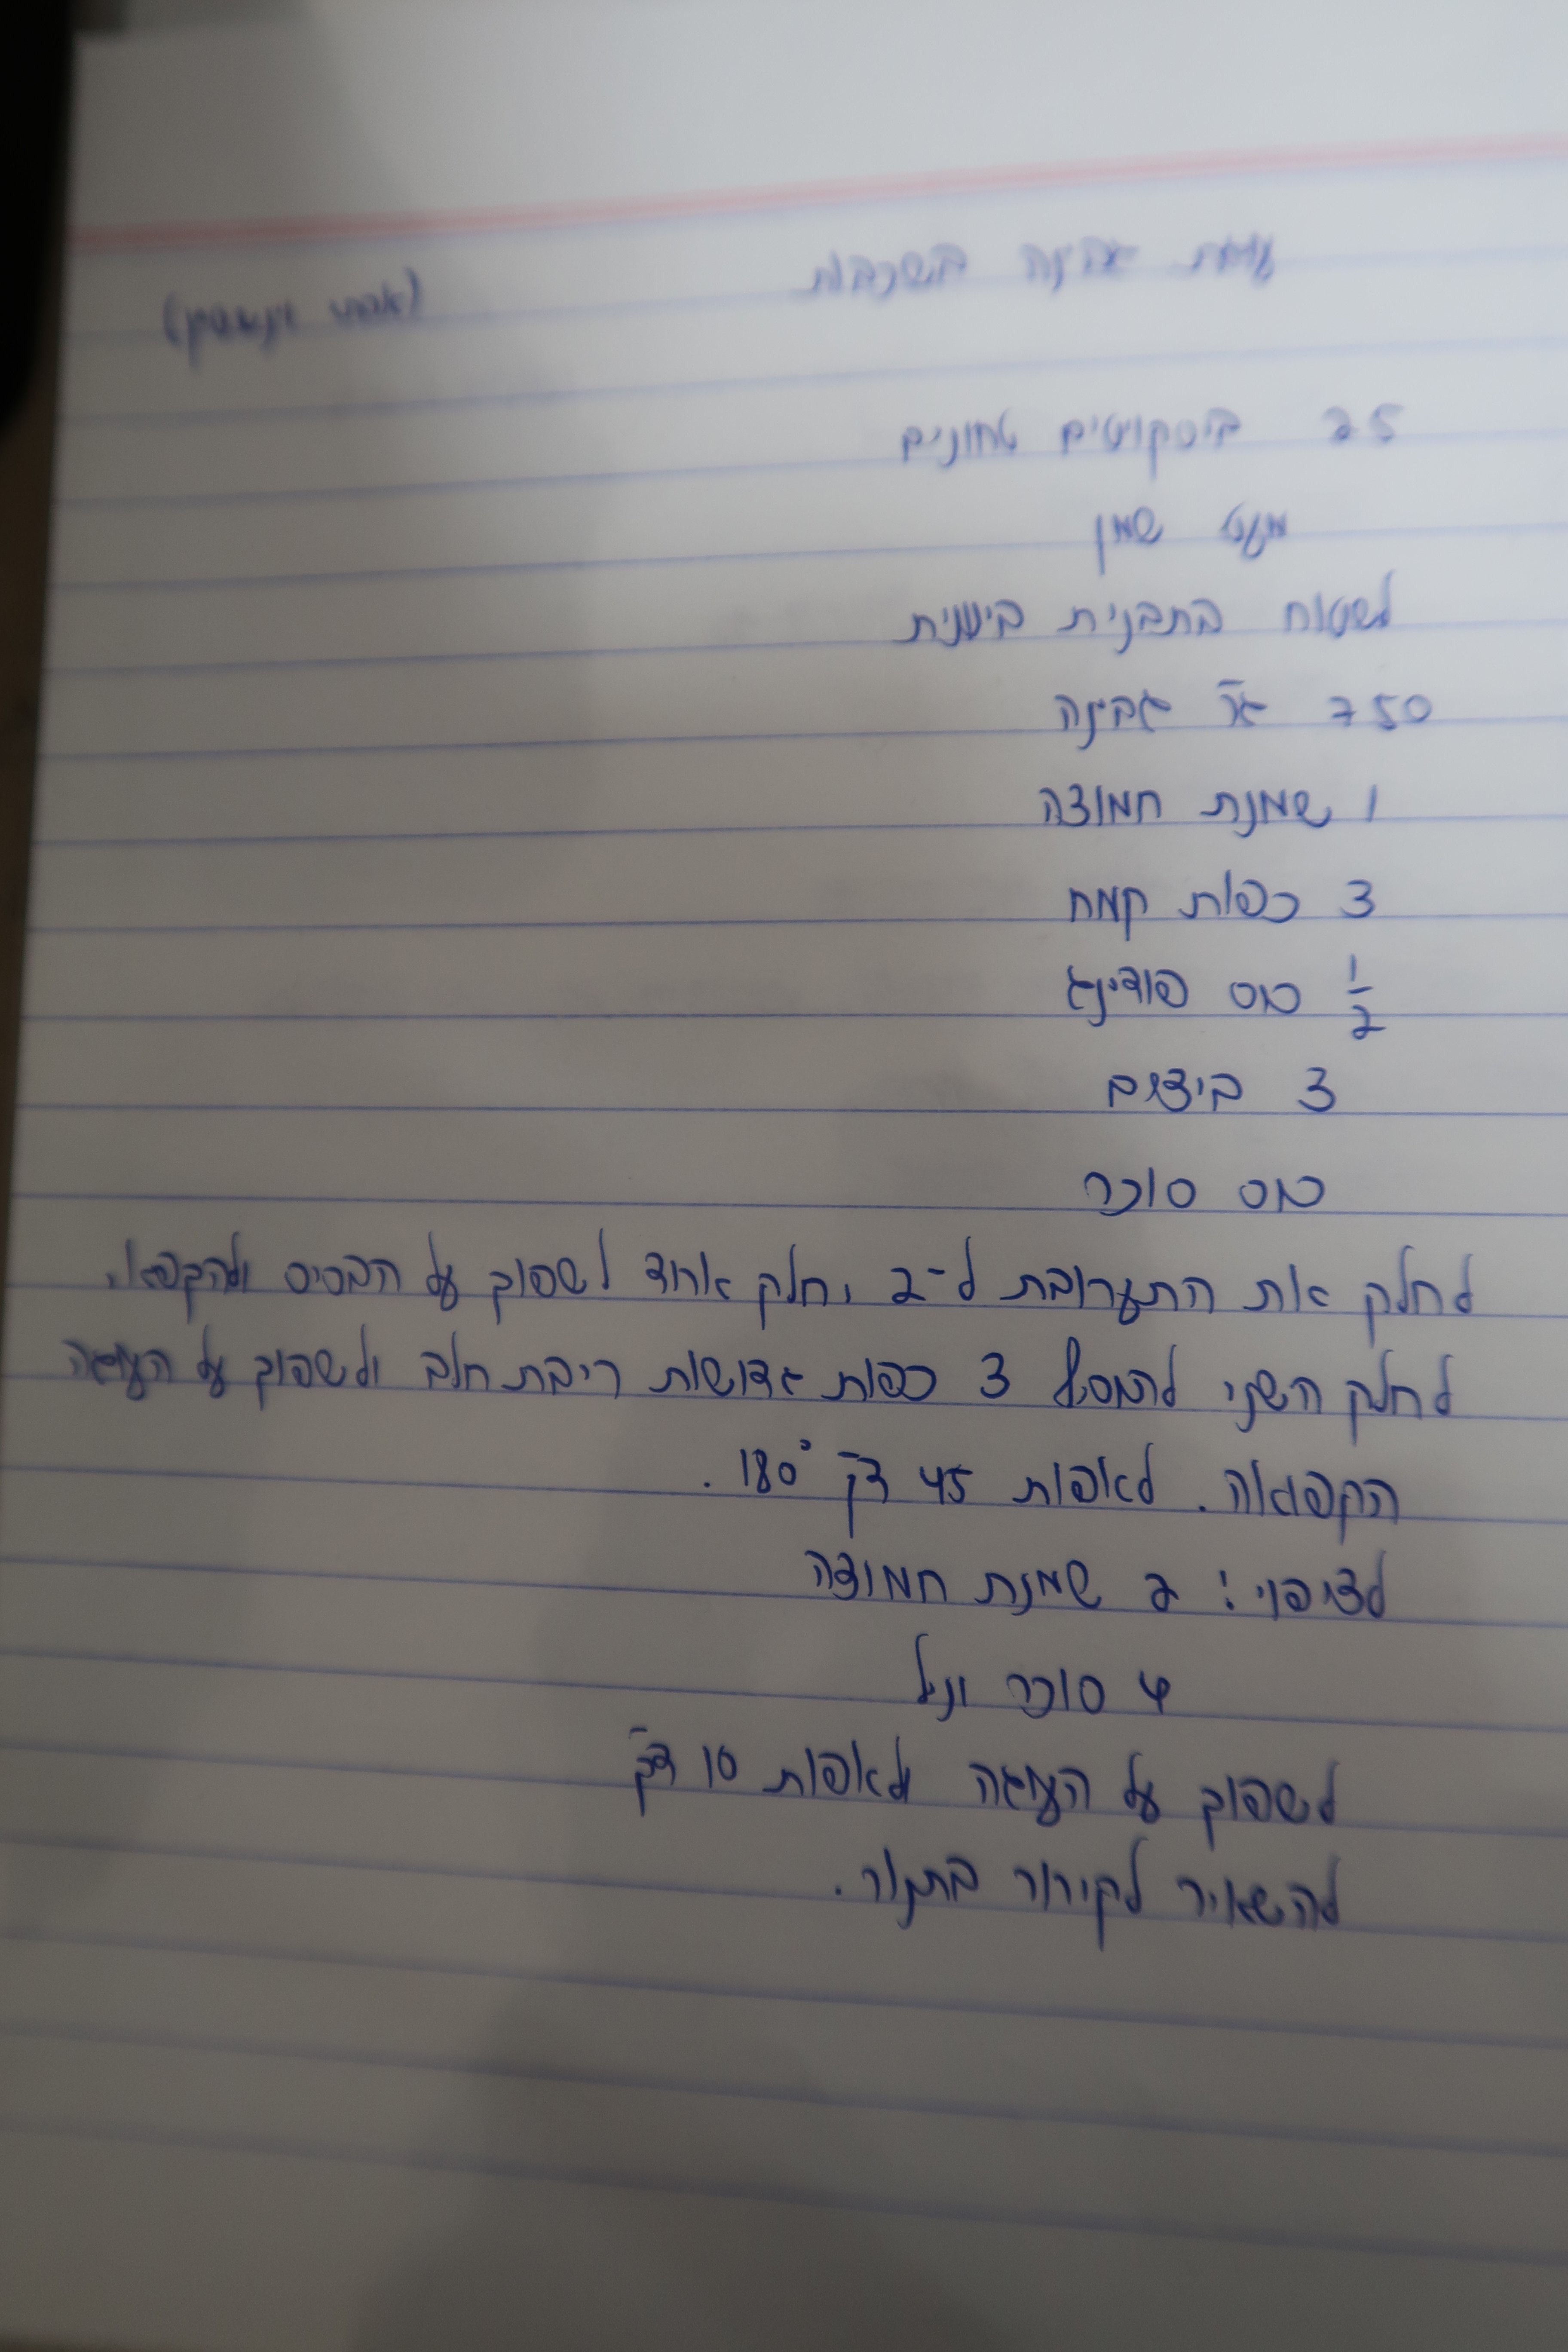 עוגת גבינה בשכבות
25 ביסקויטים טחונים
מעט שמן
לשטוח בתבנית בינונית
750 גר' גבינה
1 שמנת חמוצה
3 כפות קמח
1/2 כוס פודינג
3 ביצים
כוס סוכר
לחלק את התערובת ל-2, חלק אחד לשפוך על הבסיס ולהקפיא.
לחלק השני להוסיף 3 כפות גדושות ריבת חלב ולשפוך על העוגה
הקפואה. לאפות 45 דק' 180°.
לציפוי: 2 שמנת חמוצה
4 סוכר וניל
לשפוך על העוגה ולאפות 10 דק'
להשאיר לקירור בתנור.